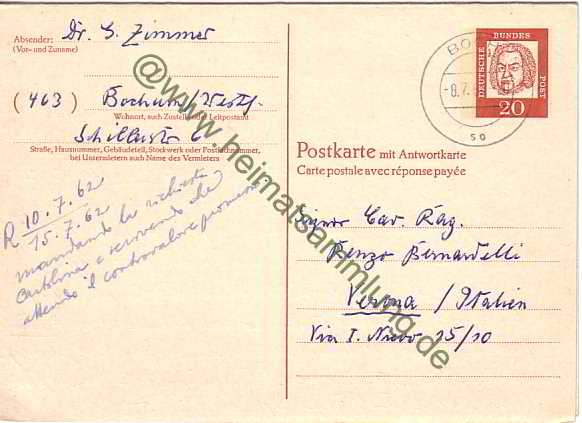 Absender: Dr. G. Zimmer
(Vor- und Zuname)
(463) Bochum/Westf.
Wohnort, auch Zustell- oder Leitpostamt
Schillerstr. 6
Straße, Hausnummer, Gebäudeteil, Stockwerk oder Postschließfachnummer,
bei Untermietern auch Name des Vermieters
R 10.7.62
15.7.62
mandando la richiesta
cartolina e scrivendo che
attendo il controvalore
BO
-8.7.
so
DEUTSCHE BUNDES POST
20
Postkarte mit Antwortkarte
Carte postale avec réponse payée
Signor Cav. Rag.
Renzo Bernardelli
Verona / Italien
Via I. Nievo 25/10
@www.heimatsammlung.de